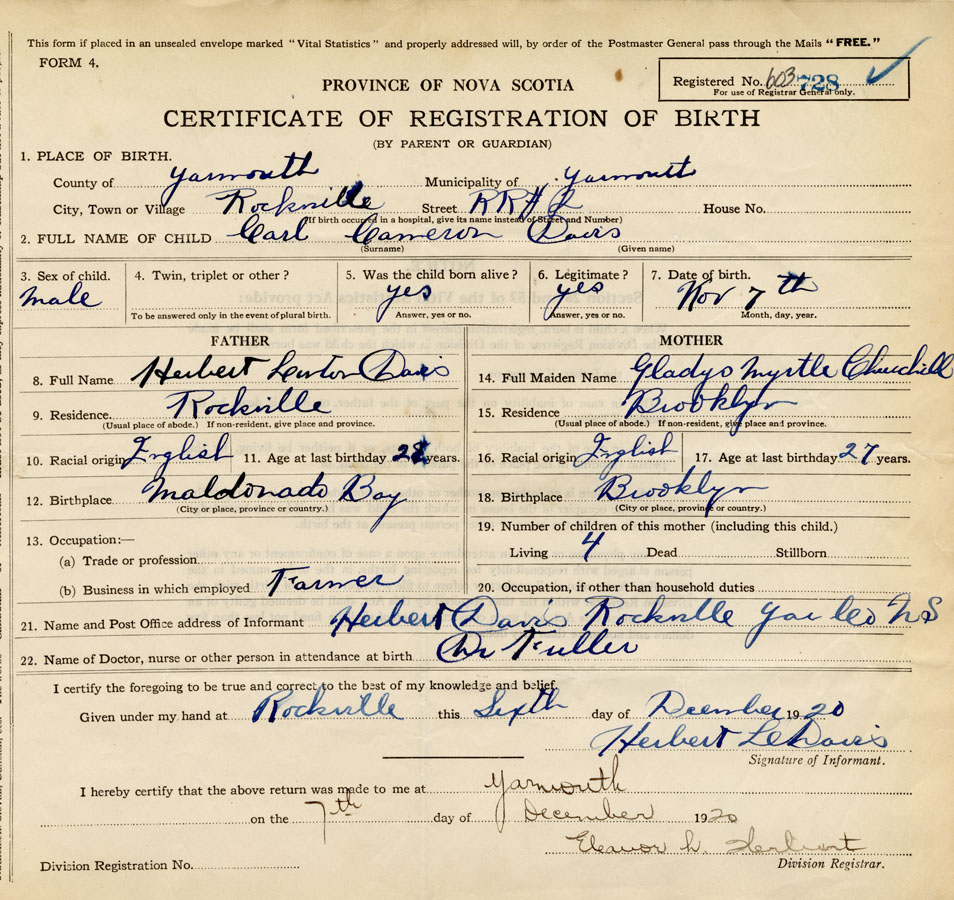 This form if placed in an unsealed envelope marked "Vital Statistics" and properly addressed will, by order of the Postmaster General pass through the Mails "FREE."
FORM 4.
Registered No. 603 728
For use of Registrar General only.
PROVINCE OF NOVA SCOTIA
CERTIFICATE OF REGISTRATION OF BIRTH
(BY PARENT OR GUARDIAN)
1. PLACE OF BIRTH.
County of Yarmouth Municipality of Yarmouth
City, Town or Village Rockville Street RR# 2 House No.
(If birth occured in a hospital, give its name instead of Street and Number)
2. FULL NAME OF CHILD Carl Cameron Davis
(Surname) (Given name)
3. Sex of child. 4. Twin, triplet or other? 5. Was the child born alive? 6. Legitimate? 7. Date of birth.
male yes yes Nov 7th
To be answered only in the event of plural birth. Answer, yes or no. Answer, yes or no. Month, day, year.
FATHER MOTHER
8. Full Name Herbert Davis 14. Full Maiden Name Gladys Myrtle Churchill
9. Residence. Rockville 15. Residence Brooklyn
(Usual place of abode.) If non-resident, give place and province. (Usual place of abode.) If non-resident, give place and province.
10. Racial origin English 11. Age at last birthday 28 years. 16. Racial origin English 17. Age at last birthday 27 years.
12. Birthplace Maldonado Bay 18. Birthplace Brooklyn
(City or place, province or country.) (City or place, province or country.)
13. Occupation:— 19. Number of children of this mother (including this child.)
(a) Trade or profession Living 4 Dead Stillborn
(b) Business in which employed Farmer 20. Occupation, if other than household duties
21. Name and Post Office address of Informant Herbert Davis Rockville Yar Co NS
22. Name of Doctor, nurse or other person in attendance at birth Dr Fuller
I certify the foregoing to be true and correct to the best of my knowledge and belief
Given under my hand at Rockville this Sixth day of December 1920
Herbert L Davis
Signature of Informant.
I hereby certify that the above return was made to me at Yarmouth
on the 7th day of December 1920
Eleanor L. Herbert
Division Registration No. Division Registrar.